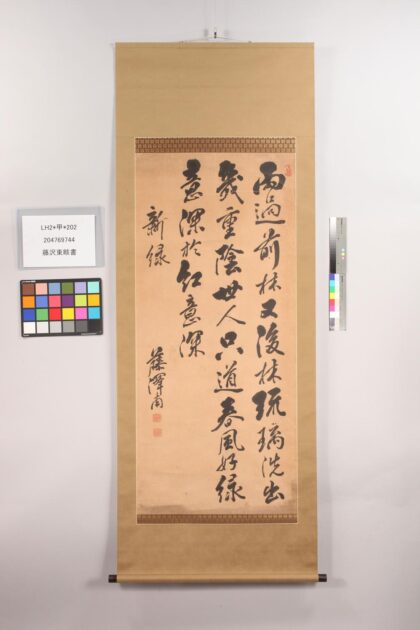 LH2*甲*202
204769744
藤沢東畡書
雨過前林又後林琉璃洗出
幾重陰世人只道春風好緑
意深於紅意深
新緑
藤澤甫